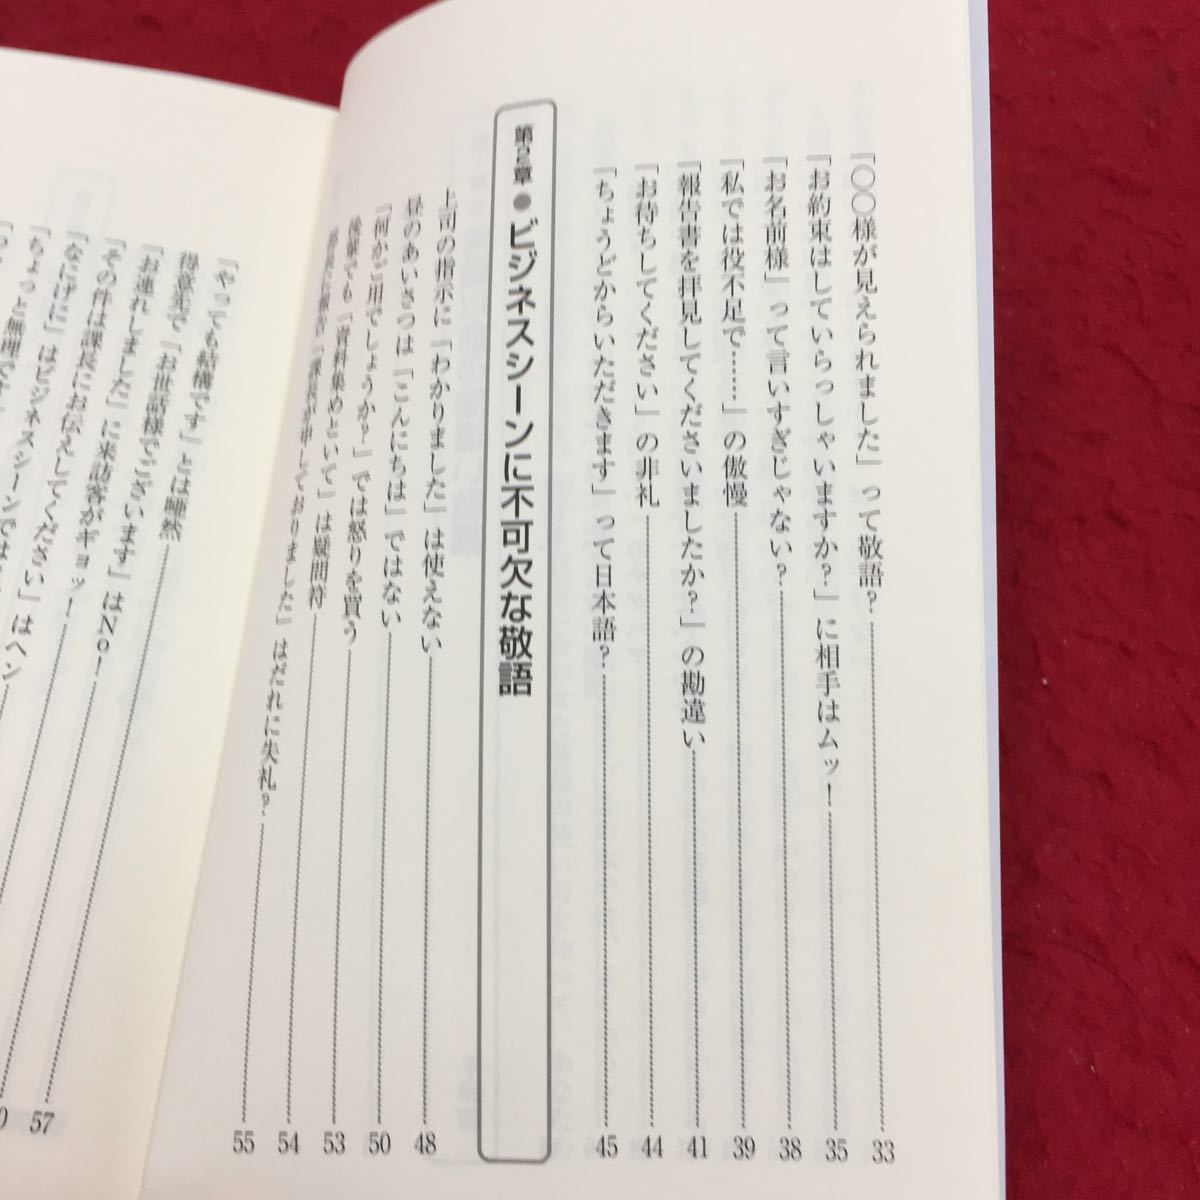 「○○様が見えられました」って敬語? 33
「お約束はしていらっしゃいますか?」に相手はムッ! 35
「お名前様」って言いすぎじゃない? 38
「私では役不足で……」の傲慢 39
「報告書を拝見してくださいましたか?」の勘違い 41
「お待ちしてください」の非礼 44
「ちょうどからいただきます」って日本語? 45
第2章●ビジネスシーンに不可欠な敬語
上司の指示に「わかりました」は使えない 48
昼のあいさつは「こんにちは」ではない 50
「何かご用でしょうか?」では怒りを買う 53
後輩でも「資料集めといて」は疑問符 54
部長に報告「課長が申しておりました」はだれに失礼? 55
「やっても結構です」とは唖然
得意先で「お世話様でございます」はNo!
「お連れしました」に来訪客がギョッ!
「その件は課長にお伝えしてください」はヘン
「なにげに」はビジネスシーンでは 57
「ちょっと無理です」 0